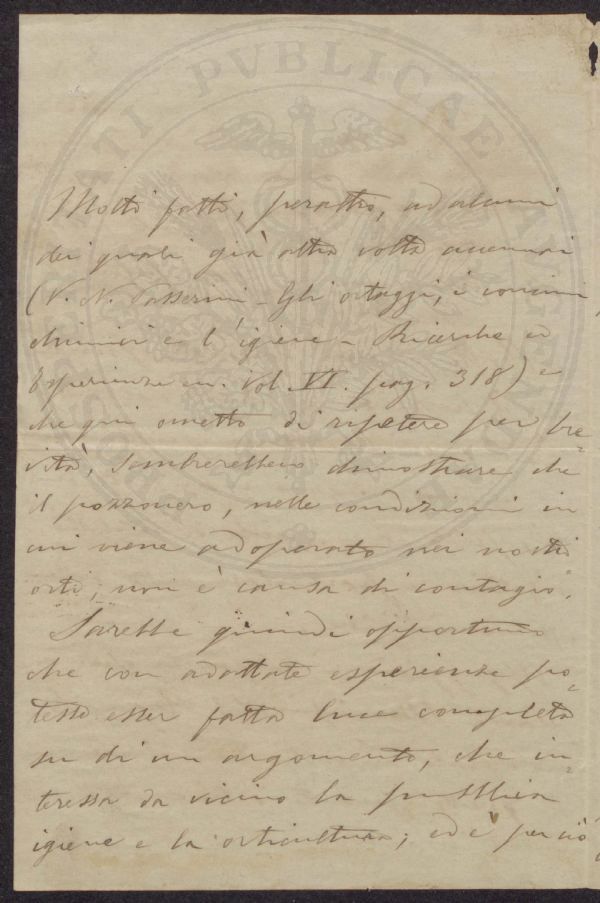 PROSPERITATI PVBLICAE AVGENDAE
Molti fatti, peraltro, ad alcuni
dei quali già altra volta accennai
(V. N. Passerini - Gli ortaggi, i concimi
chimici e l'igiene - Ricerche ed
Esperienze ecc. Vol. VI. pag. 318) e
che qui ometto di ripetere per bre=
vità, sembrerebbero dimostrare che
il pozzonero, nelle condizioni in
cui viene adoperato nei nostri
orti, non è causa di contagio.
Sarebbe quindi opportuno
che con adattate esperienze po=
tesse esser fatta luce completa
su di un argomento, che in=
teressa da vicino la pubblica
igiene e la orticultura; ed è perciò